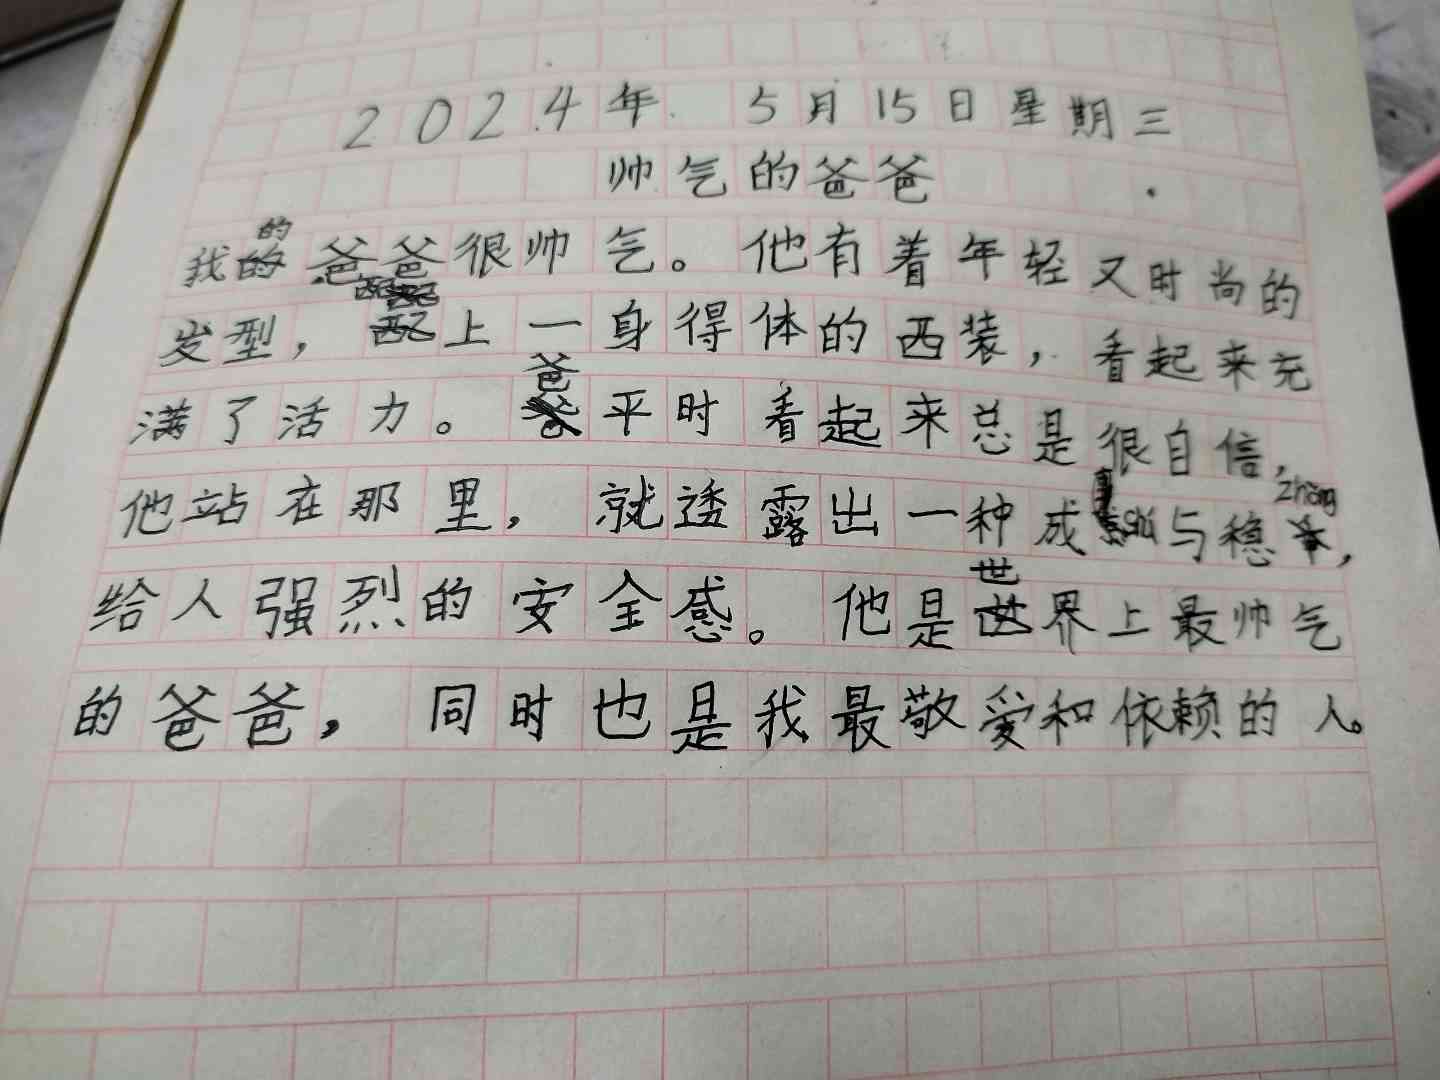 2024年 5月15日星期三
帅气的爸爸
我的爸爸很帅气。他有着年轻又时尚的
发型，配上一身得体的西装，看起来充
满了活力。爸平时看起来总是很自信，
他站在那里，就透露出一种成shú与稳zhòng，
给人强烈的安全感。他是世界上最帅气
的爸爸，同时也是我最敬爱和依赖的人。